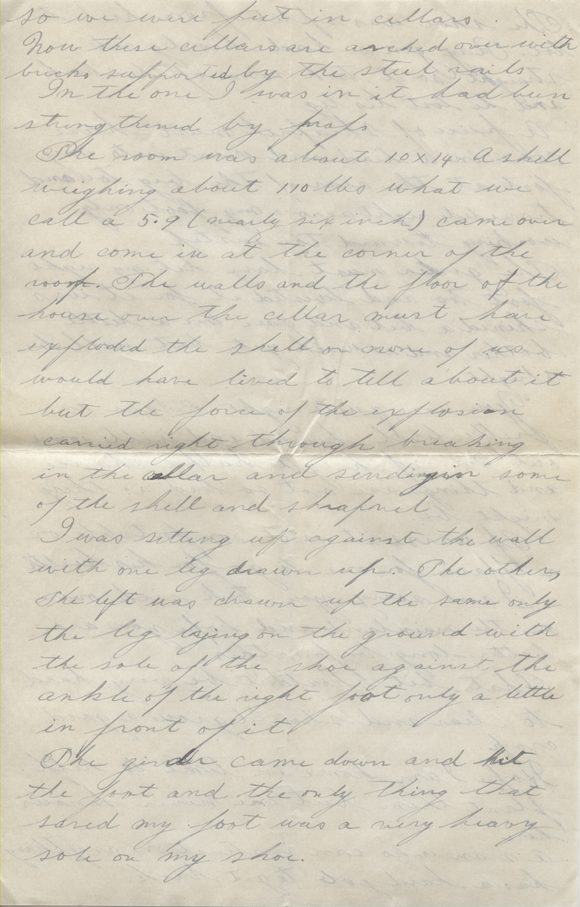 so we were put in cellars.
Now these cellars are arched over with
bricks supported by the steel rails
In the one I was in it had been
strengthened by props
The room was about 10x14 A shell
weighing about 110 lbs what we
call a 5.9 (nearly six inch) came over
and come in at the corner of the
roof. The walls and the floor of the
house over the cellar must have
exploded the shell or none of us
would have lived to tell about it
but the force of the explosion
carried right through breaking
in the cellar and sending in some
of the shell and shrapnel
I was setting up against the wall
with one leg drawn up. The other,
the left was drawn up the same only
the leg laying on the ground with
the sole of the shoe against the
ankle of the right foot only a little
in front of it
The girder came down and hit
the foot and the only thing that
saved my foot was a very heavy
sole on my shoe.